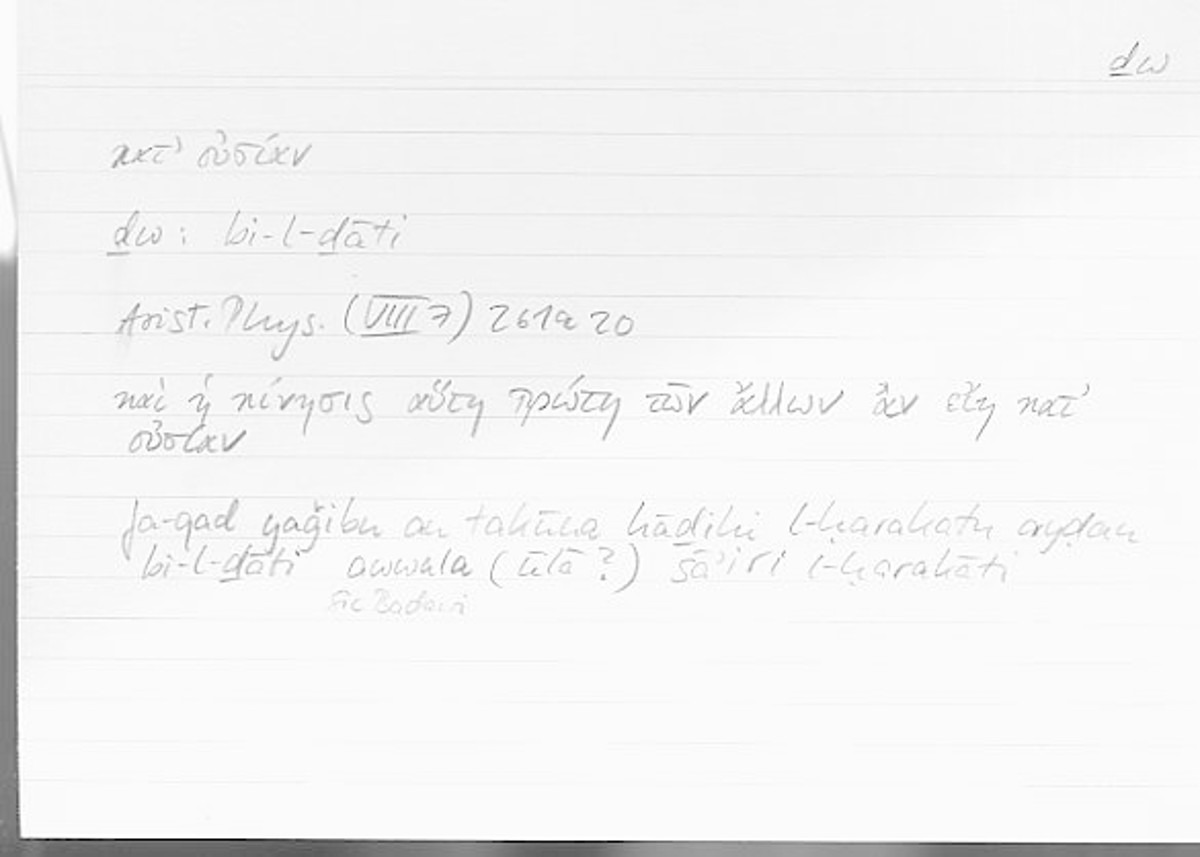 ḏw
κατ' οὐσίαν
ḏw: bi-l-ḏāti
Arist. Phys. (VIII 7) 261a 20
καὶ ἡ κίνησις αὕτη πρώτη τῶν ἄλλων ἂν εἴη κατ'
οὐσίαν
fa-qad yaǧibu an takūna hāḏihi l-ḥarakatu ayḍan
bi-l-ḏāti awwala (ūlā?) sāʾiri l-ḥarakāti
sic Badawi